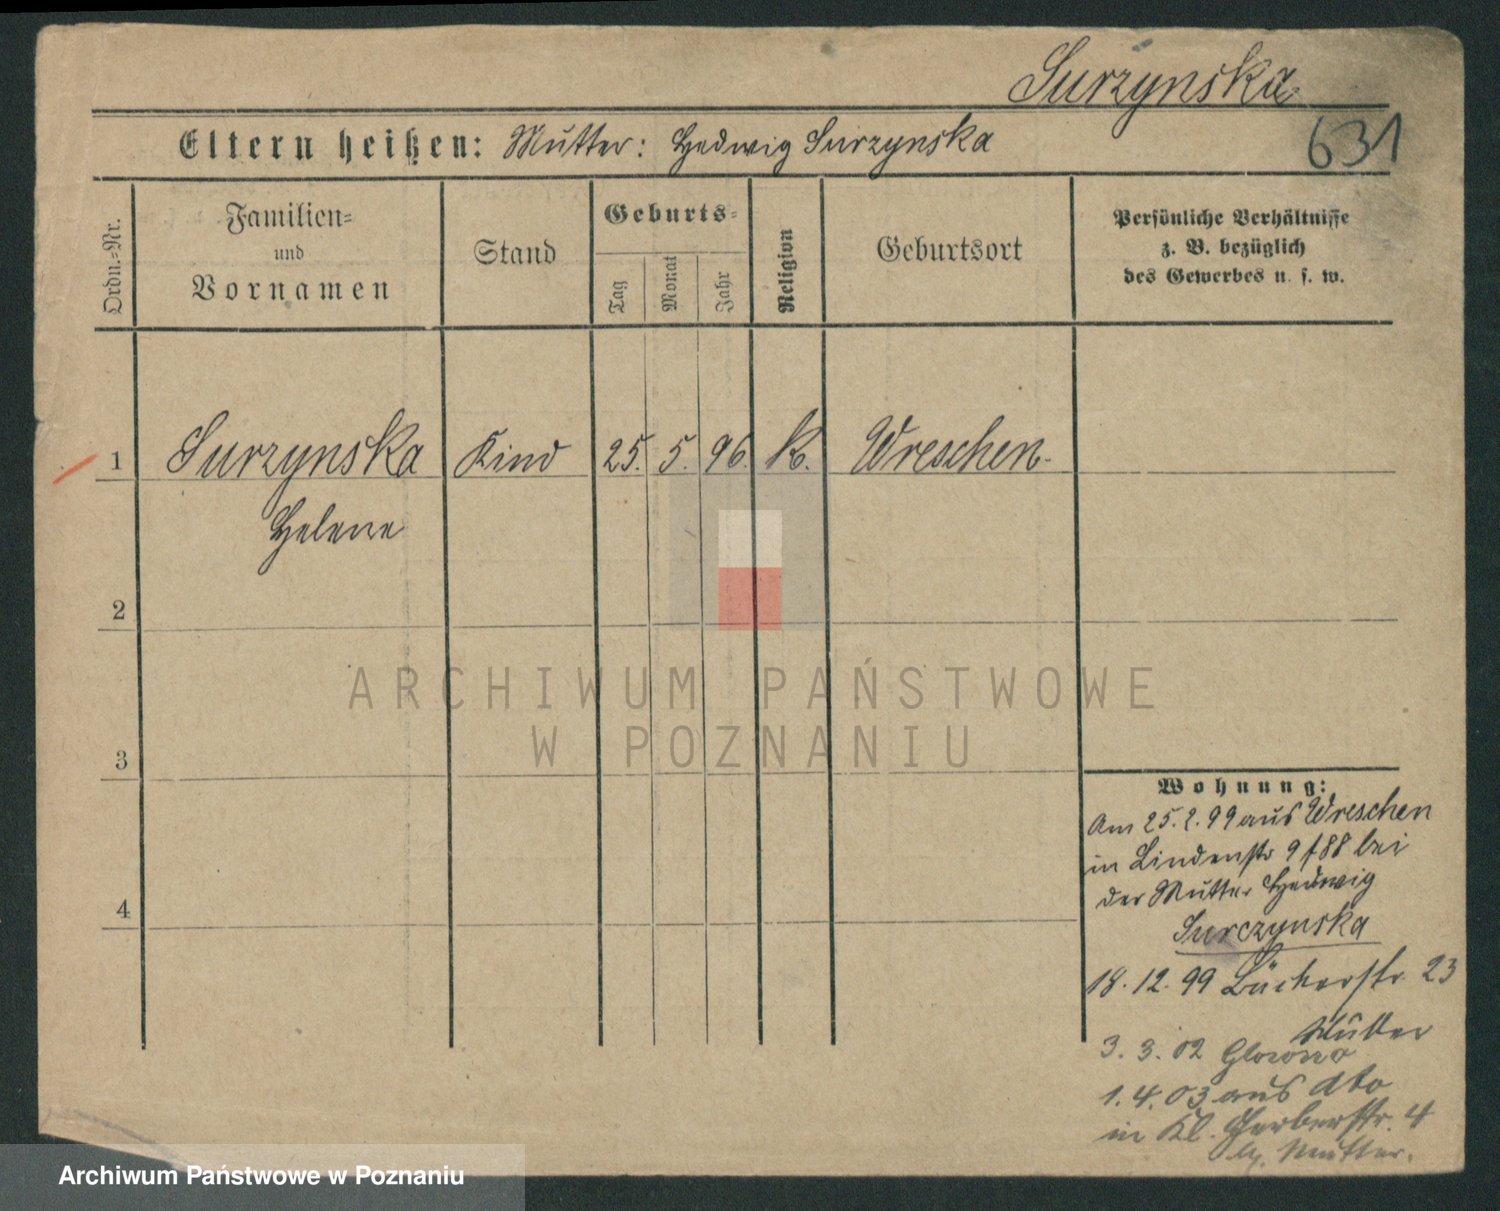 Surzynska
631
Eltern heißen: Mutter: Hedwig Surzynska
Ordn.-Nr.
Familien-
und
Vornamen
Stand
Geburts-
Tag
Monat
Jahr
Religion
Geburtsort
Persönliche Verhältnisse
z. B. bezüglich
des Gewerbes u. s. w.
1 Surzynska Kind 25. 5. 96. k. Wreschen.
Helene
2
3
4
ARCHIWUM PAŃSTWOWE
W POZNANIU
Wohnung:
Am 25.2.99 aus Wreschen
in Lindenstr 9 f 88 bei
der Mutter Hedwig
Surczynska
18.12.99 Bäckerstr. 23
Mutter
3. 3. 02 Glowno
1. 4. 03 aus dto
in Kl. Gerberstr. 4
Mutter.
Archiwum Państwowe w Poznaniu